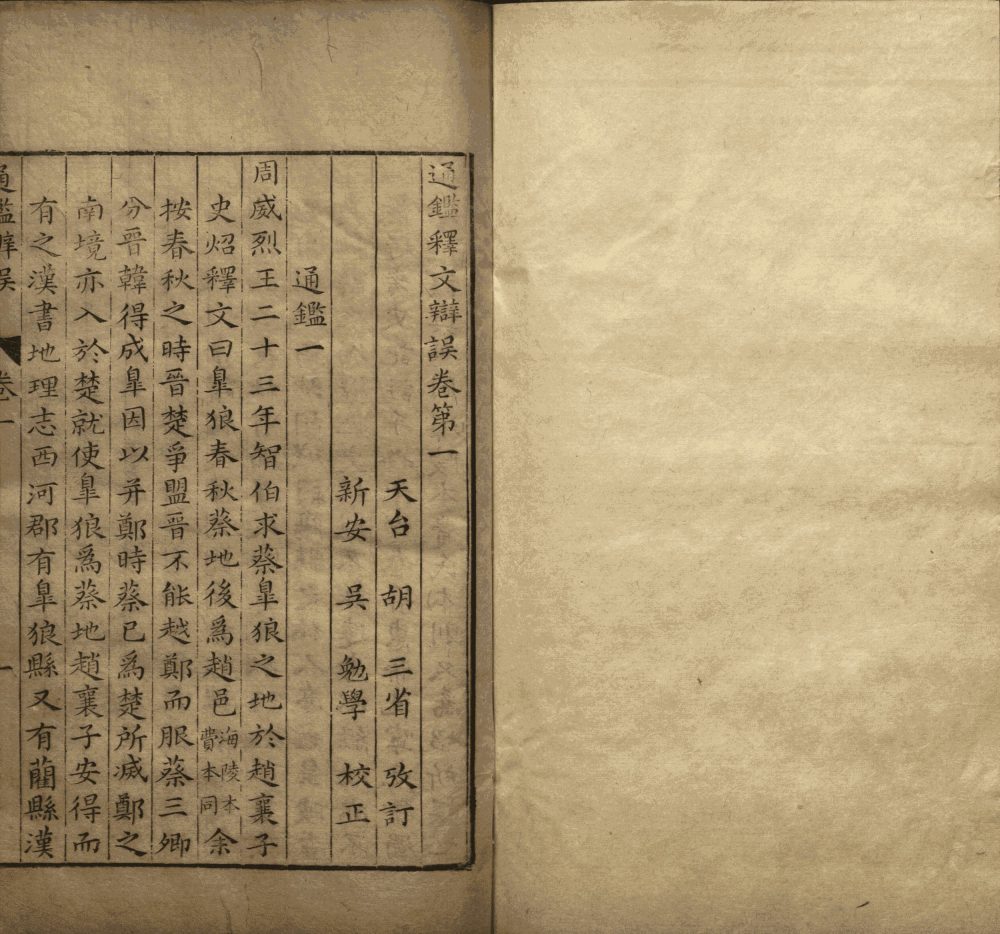 通鑑釋文辯誤卷第一
天台 胡 三省 攷訂
新安 吳 勉學 校正
通鑑一
周威烈王二十三年智伯求蔡臯狼之地於趙襄子
史炤釋文曰臯狼春秋蔡地後爲趙邑海陵本費本同余
按春秋之時晉楚爭盟晉不能越鄭而服蔡三卿
分晉韓得成臯因以并鄭時蔡已爲楚所滅鄭之
南境亦入於楚就使臯狼爲蔡地趙襄子安得而
有之漢書地理志西河郡有臯狼縣又有藺縣漢
通鑑辯誤 卷一 一